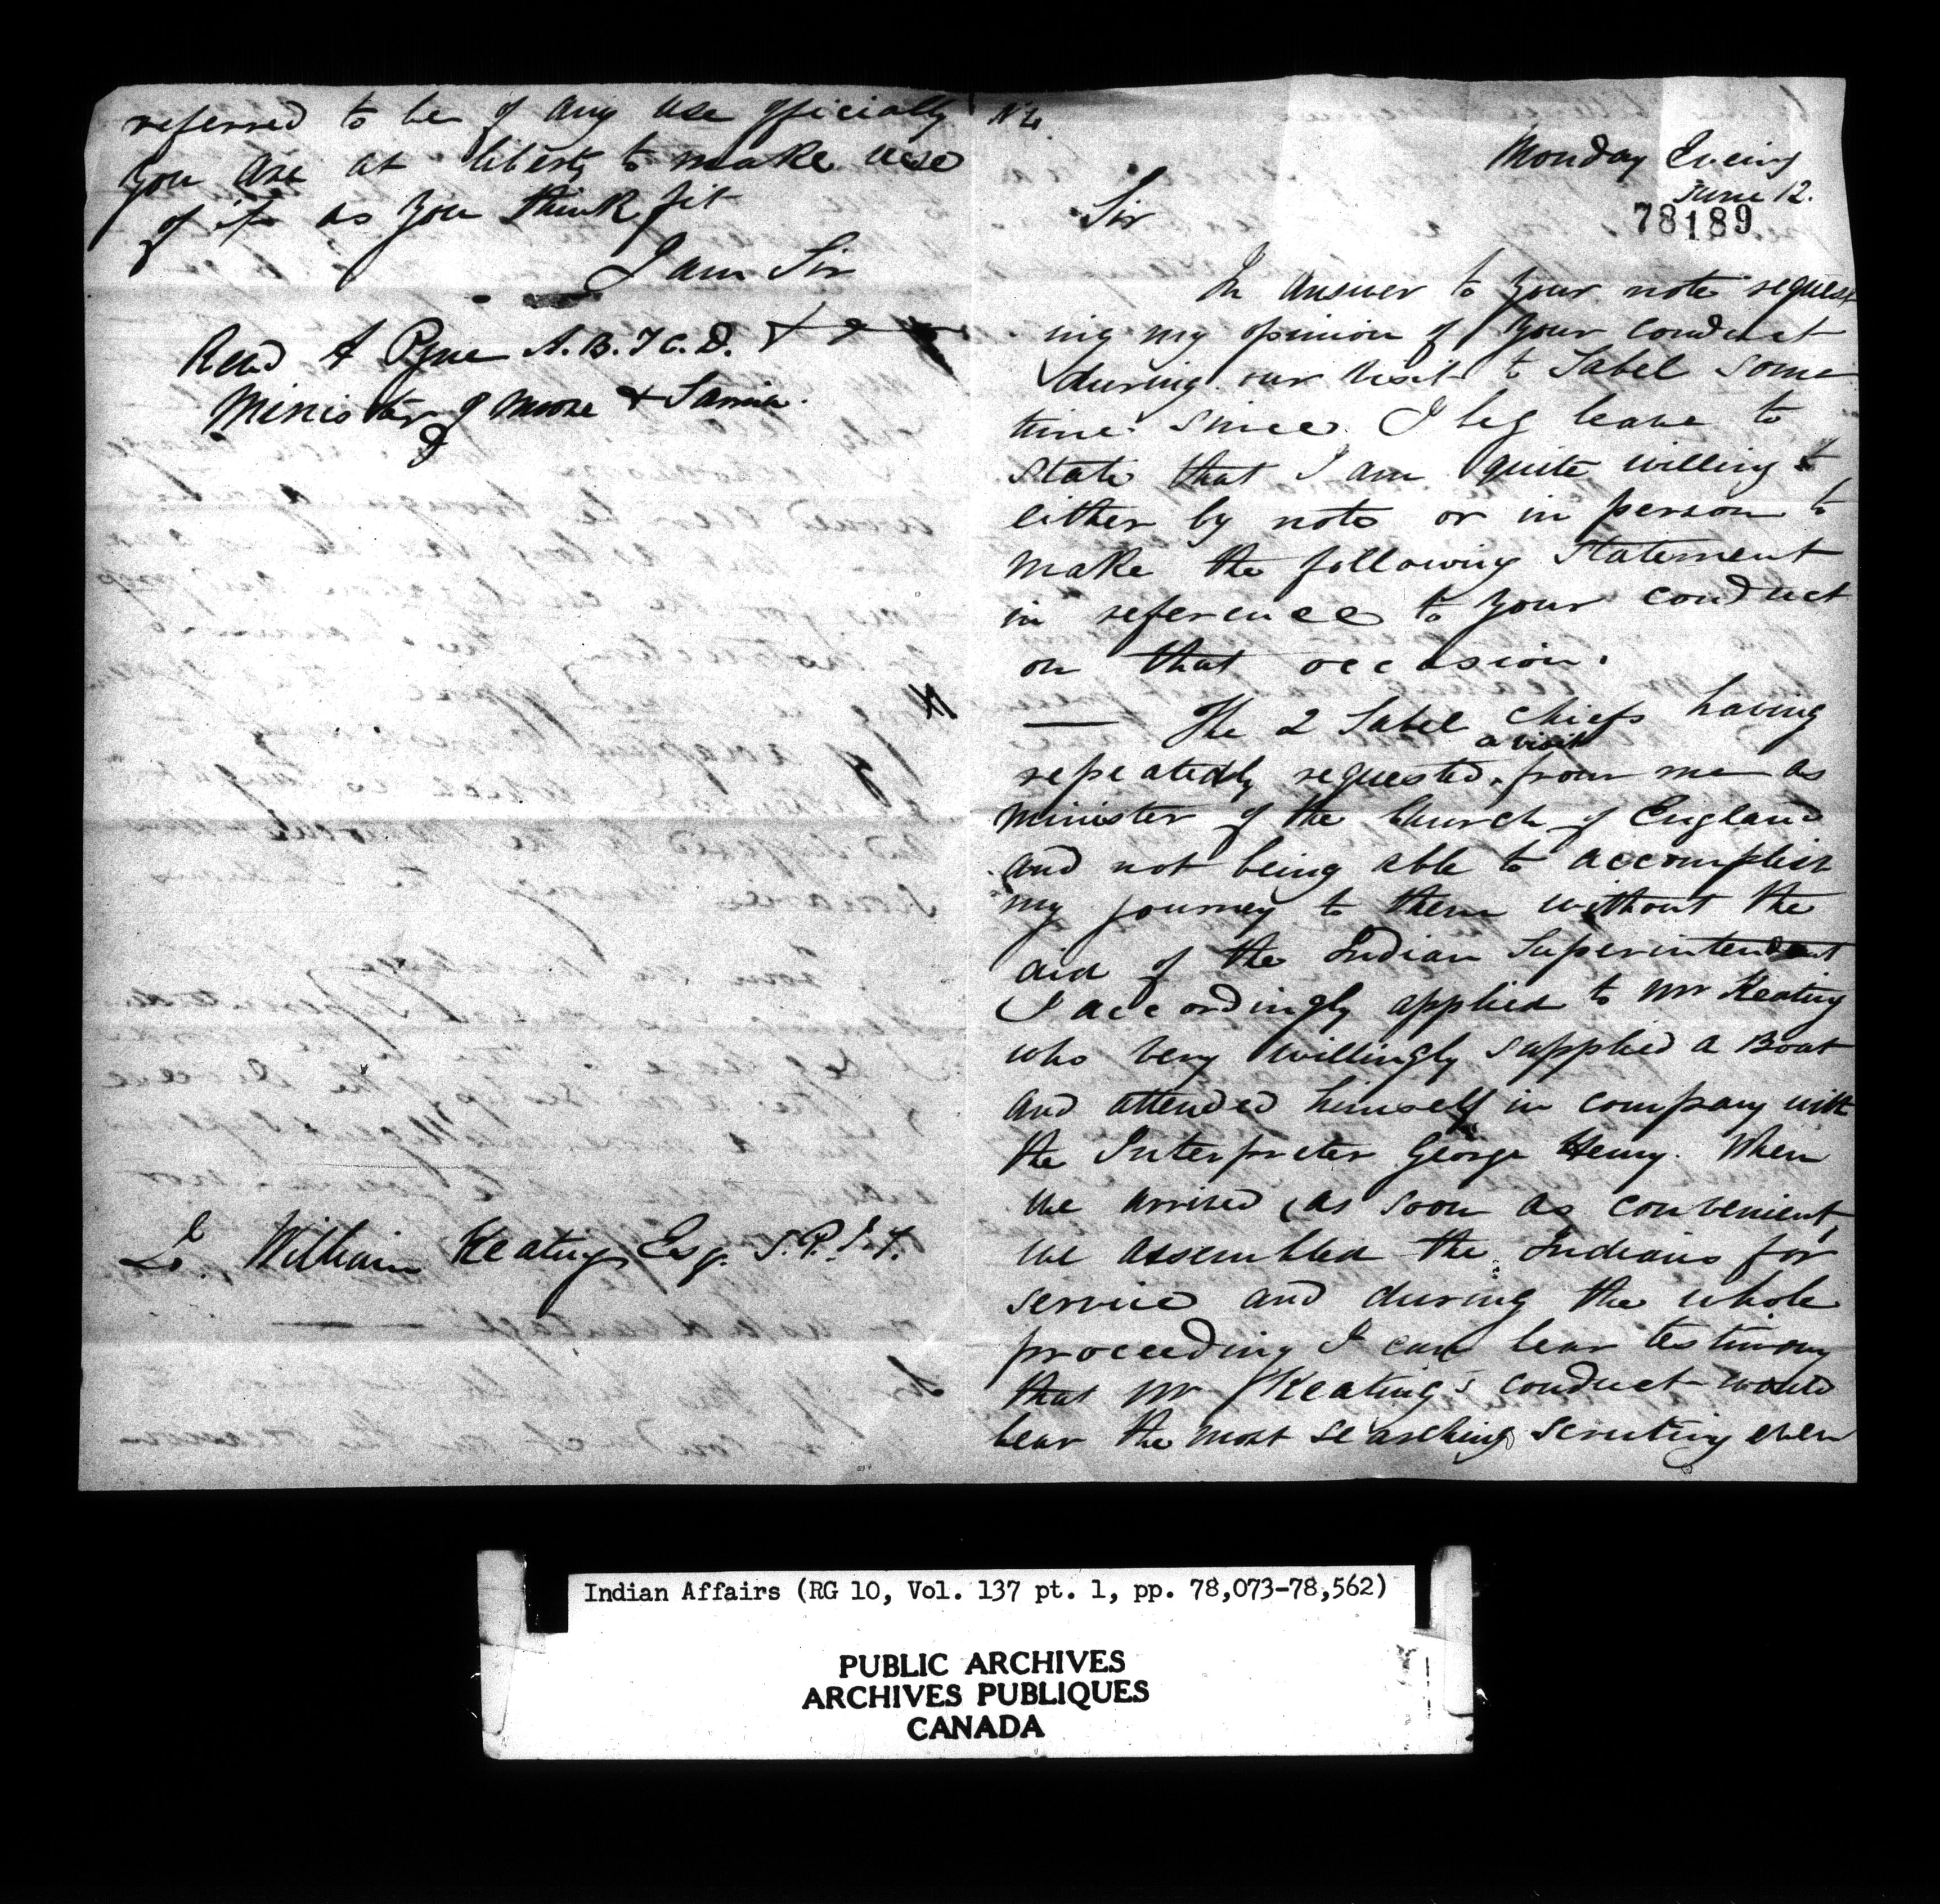 referred to be of any use officially
you are at liberty to make use
of it as you think fit
I am Sir
Read A Pyne A.B.T.C.D. + &
Minister of Moore & Sarnia.
William Keating Esq. S.
No
Monday Evening
June 12.
78189
Sir
In answer to your note request
ing my opinion of your conduct
during our visit to Sabel some
time since. I beg leave to
state that I am quite willing
either by note or in person to
make the following statement
in reference to your conduct
on that occasion.
— The 2 Sabel Chiefs having
a visit
repeatedly requested from me as
minister of the Church of England
and not being able to accomplish
my journey to them without the
aid of the Indian Superintendent
I accordingly applied to Mr Keating
who very willingly supplied a Boat
and attended himself in company with
the Interpreter George Henry. When
we arrived, as soon as convenient,
we assembled the Indians for
service and during the whole
proceeding I can bear testimony
that Mr Keating's conduct would
bear the most searching scrutiny even
Indian Affairs (RG 10, Vol. 137 pt. 1, pp. 78,073-78,562)
PUBLIC ARCHIVES
ARCHIVES PUBLIQUES
CANADA